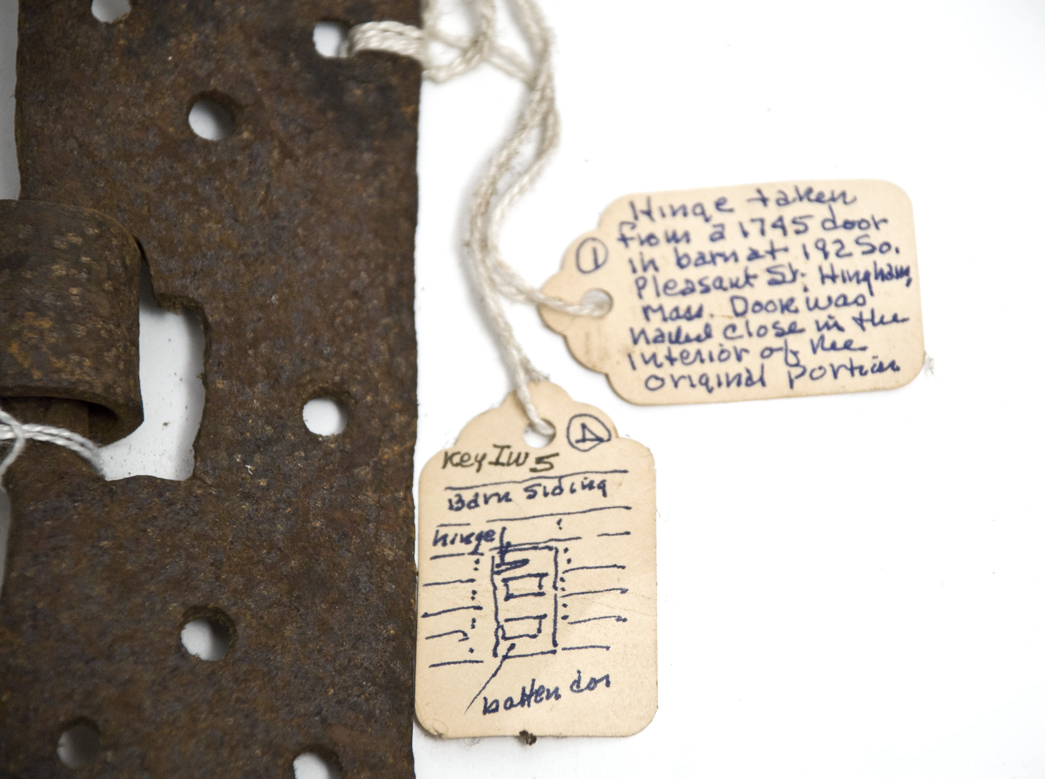 ①
Hinge taken
from a 1745 door
in barn at 192 So.
Pleasant St. Hingham,
Mass. Door was
nailed close in the
interior of the
original portion
key IW 5
Barn Siding
hinge
batten dor